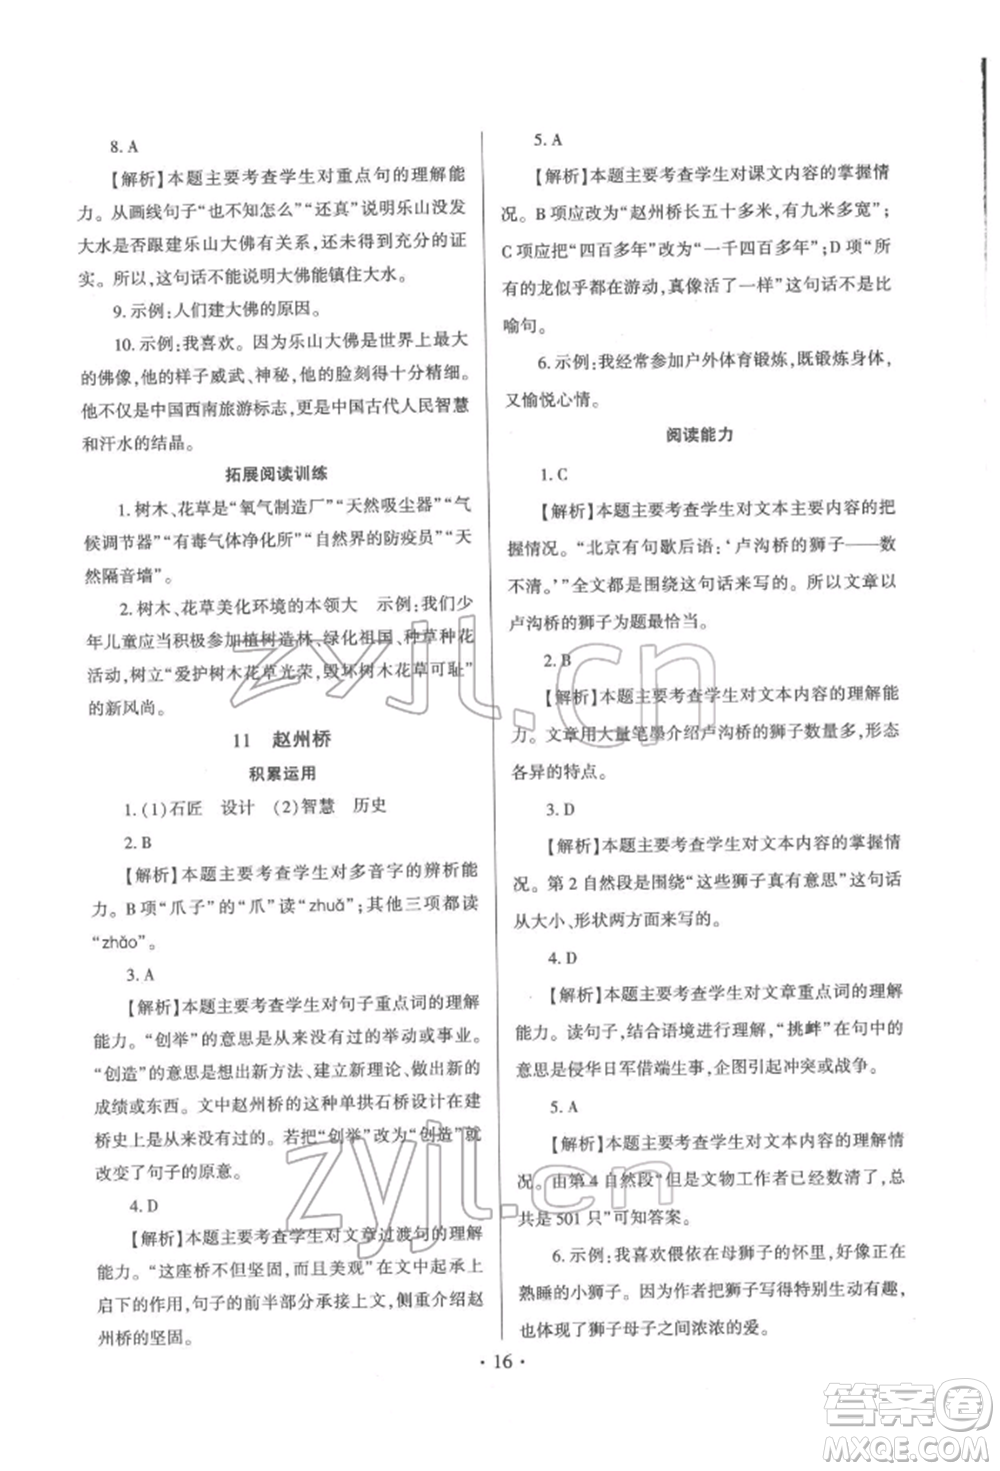 8. A
【解析】本题主要考查学生对重点句的理解能
力。从画线句子“也不知怎么”“还真”说明乐山没发
大水是否跟建乐山大佛有关系,还有待充分的证
实。所以,这句话不能说明大佛能镇住大水。
9. 示例:人们建大佛的原因。
10. 示例:我喜欢。因为乐山大佛是世界上最大
的佛像,他的样子威武、神秘,他的脸刻得十分精细。
他不仅是中国西南旅游标志,更是中国古代人民智慧
和汗水的结晶。
拓展阅读训练
1. 树木、花草是“氧气制造厂”“天然吸尘器”“气
候调节器”“有毒气体净化所”“自然界的防疫员”“天
然隔音墙”。
2. 树木、花草美化环境的本领大　示例:我们少
年儿童应当积极参加植树造林、绿化祖国、种草种花
活动,树立“爱护树木花草光荣,毁坏树木花草可耻”
的新风尚。
11　赵州桥
积累运用
1. (1)石匠　设计　(2)智慧　历史
2. B
【解析】本题主要考查学生对多音字的辨析能
力。B 项“爪子”的“爪”读“zhuǎ”;其他三项都读
“zhǎo”。
3. A
【解析】本题主要考查学生对句子重点词的理解
能力。“创举”的意思是从来没有过的举动或事业。
“创造”的意思是想出新方法、建立新理论、做出新的
成绩或东西。文中赵州桥的这种单拱石桥设计在建
桥史上是没有过的。若把“创举”改为“创造”,就
改变了句子的原意。
4. D
【解析】本题主要考查学生对文章过渡句的理解
能力。“这座桥不但坚固,而且美观”在文中承上
启下的作用,句子的前半部分承接上文,侧重介绍赵
州桥的坚固。
5. A
【解析】本题主要考查学生对课文内容的掌握情
况。B 项应改为“赵州桥长五十多米,有九米多宽”;
C 项应把“四百多年”改为“一千四百多年”;D 项“所
有的龙似乎都在游动,真像活了一样”这句话不是比
喻句。
6. 示例:我经常参加户外体育锻炼,既锻炼身体,
又愉悦心情。
阅读能力
1. C
【解析】本题主要考查学生对文本主要内容的把
握情况。“北京有句歇后语:‘卢沟桥的狮子——数
不清。’”全文都是围绕这句话来写的。所以文章以
卢沟桥的狮子为题最恰当。
2. B
【解析】本题主要考查学生对文本内容的理解能
力。文章用大量笔墨介绍卢沟桥的狮子数量多,形态
各异的特点。
3. D
【解析】本题主要考查学生对文本内容的掌握情
况。第 2 自然段是围绕“这些狮子真有意思”这句话
从大小、形状两方面来写的。
4. D
【解析】本题主要考查学生对文章重点词的理解
能力。读句子,结合语境进行理解,“挑衅”在句中的
意思是侵华日军借端生事,企图引起冲突或战争。
5. A
【解析】本题主要考查学生对文本内容的理解情
况。由第 4 自然段“但是文物工作者已经数清了,总
共是 501 只”可知答案。
6. 示例:我喜欢偎依在母狮子的怀里,好像正在
熟睡的小狮子。因为作者把狮子写得特别生动有趣,
也体现了狮子母子之间浓浓的爱。
· 16 ·
zyjl.cn
zyjl.cn
答案卷
MXQE.COM